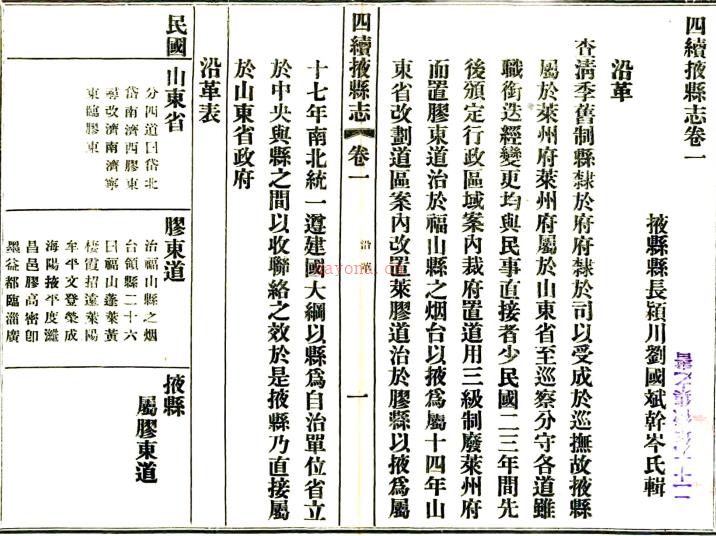 四續掖縣志卷一
掖縣縣長穎川劉國斌幹岑氏輯
沿革
查淸季舊制縣隸於府府隸於司以受成於巡撫故掖縣
屬於萊州府萊州府屬於山東省至巡察分守各道雖
職銜迭經變更均與民事直接者少民國二三年間先
後頒定行政區域案內裁府置道用三級制廢萊州府
而置膠東道治於福山縣之烟台以掖爲屬十四年山
東省改劃道區案內改置萊膠道治於膠縣以掖爲屬
四續掖縣志
卷一
沿革
一
十七年南北統一遵建國大綱以縣爲自治單位省立
於中央與縣之間以收聯絡之效於是掖縣乃直接屬
於山東省政府
沿革表
民國
山東省
分四道曰岱北
岱南濟西膠東
尋改濟南濟寧
東臨膠東
膠東道
治福山縣之烟
台領縣二十六
曰福山蓬萊黃
棲霞招遠萊陽
牟平文登榮成
海陽掖平度濰
昌邑膠高密卽
墨益都臨淄廣
掖縣
屬膠東道
kayona.cn